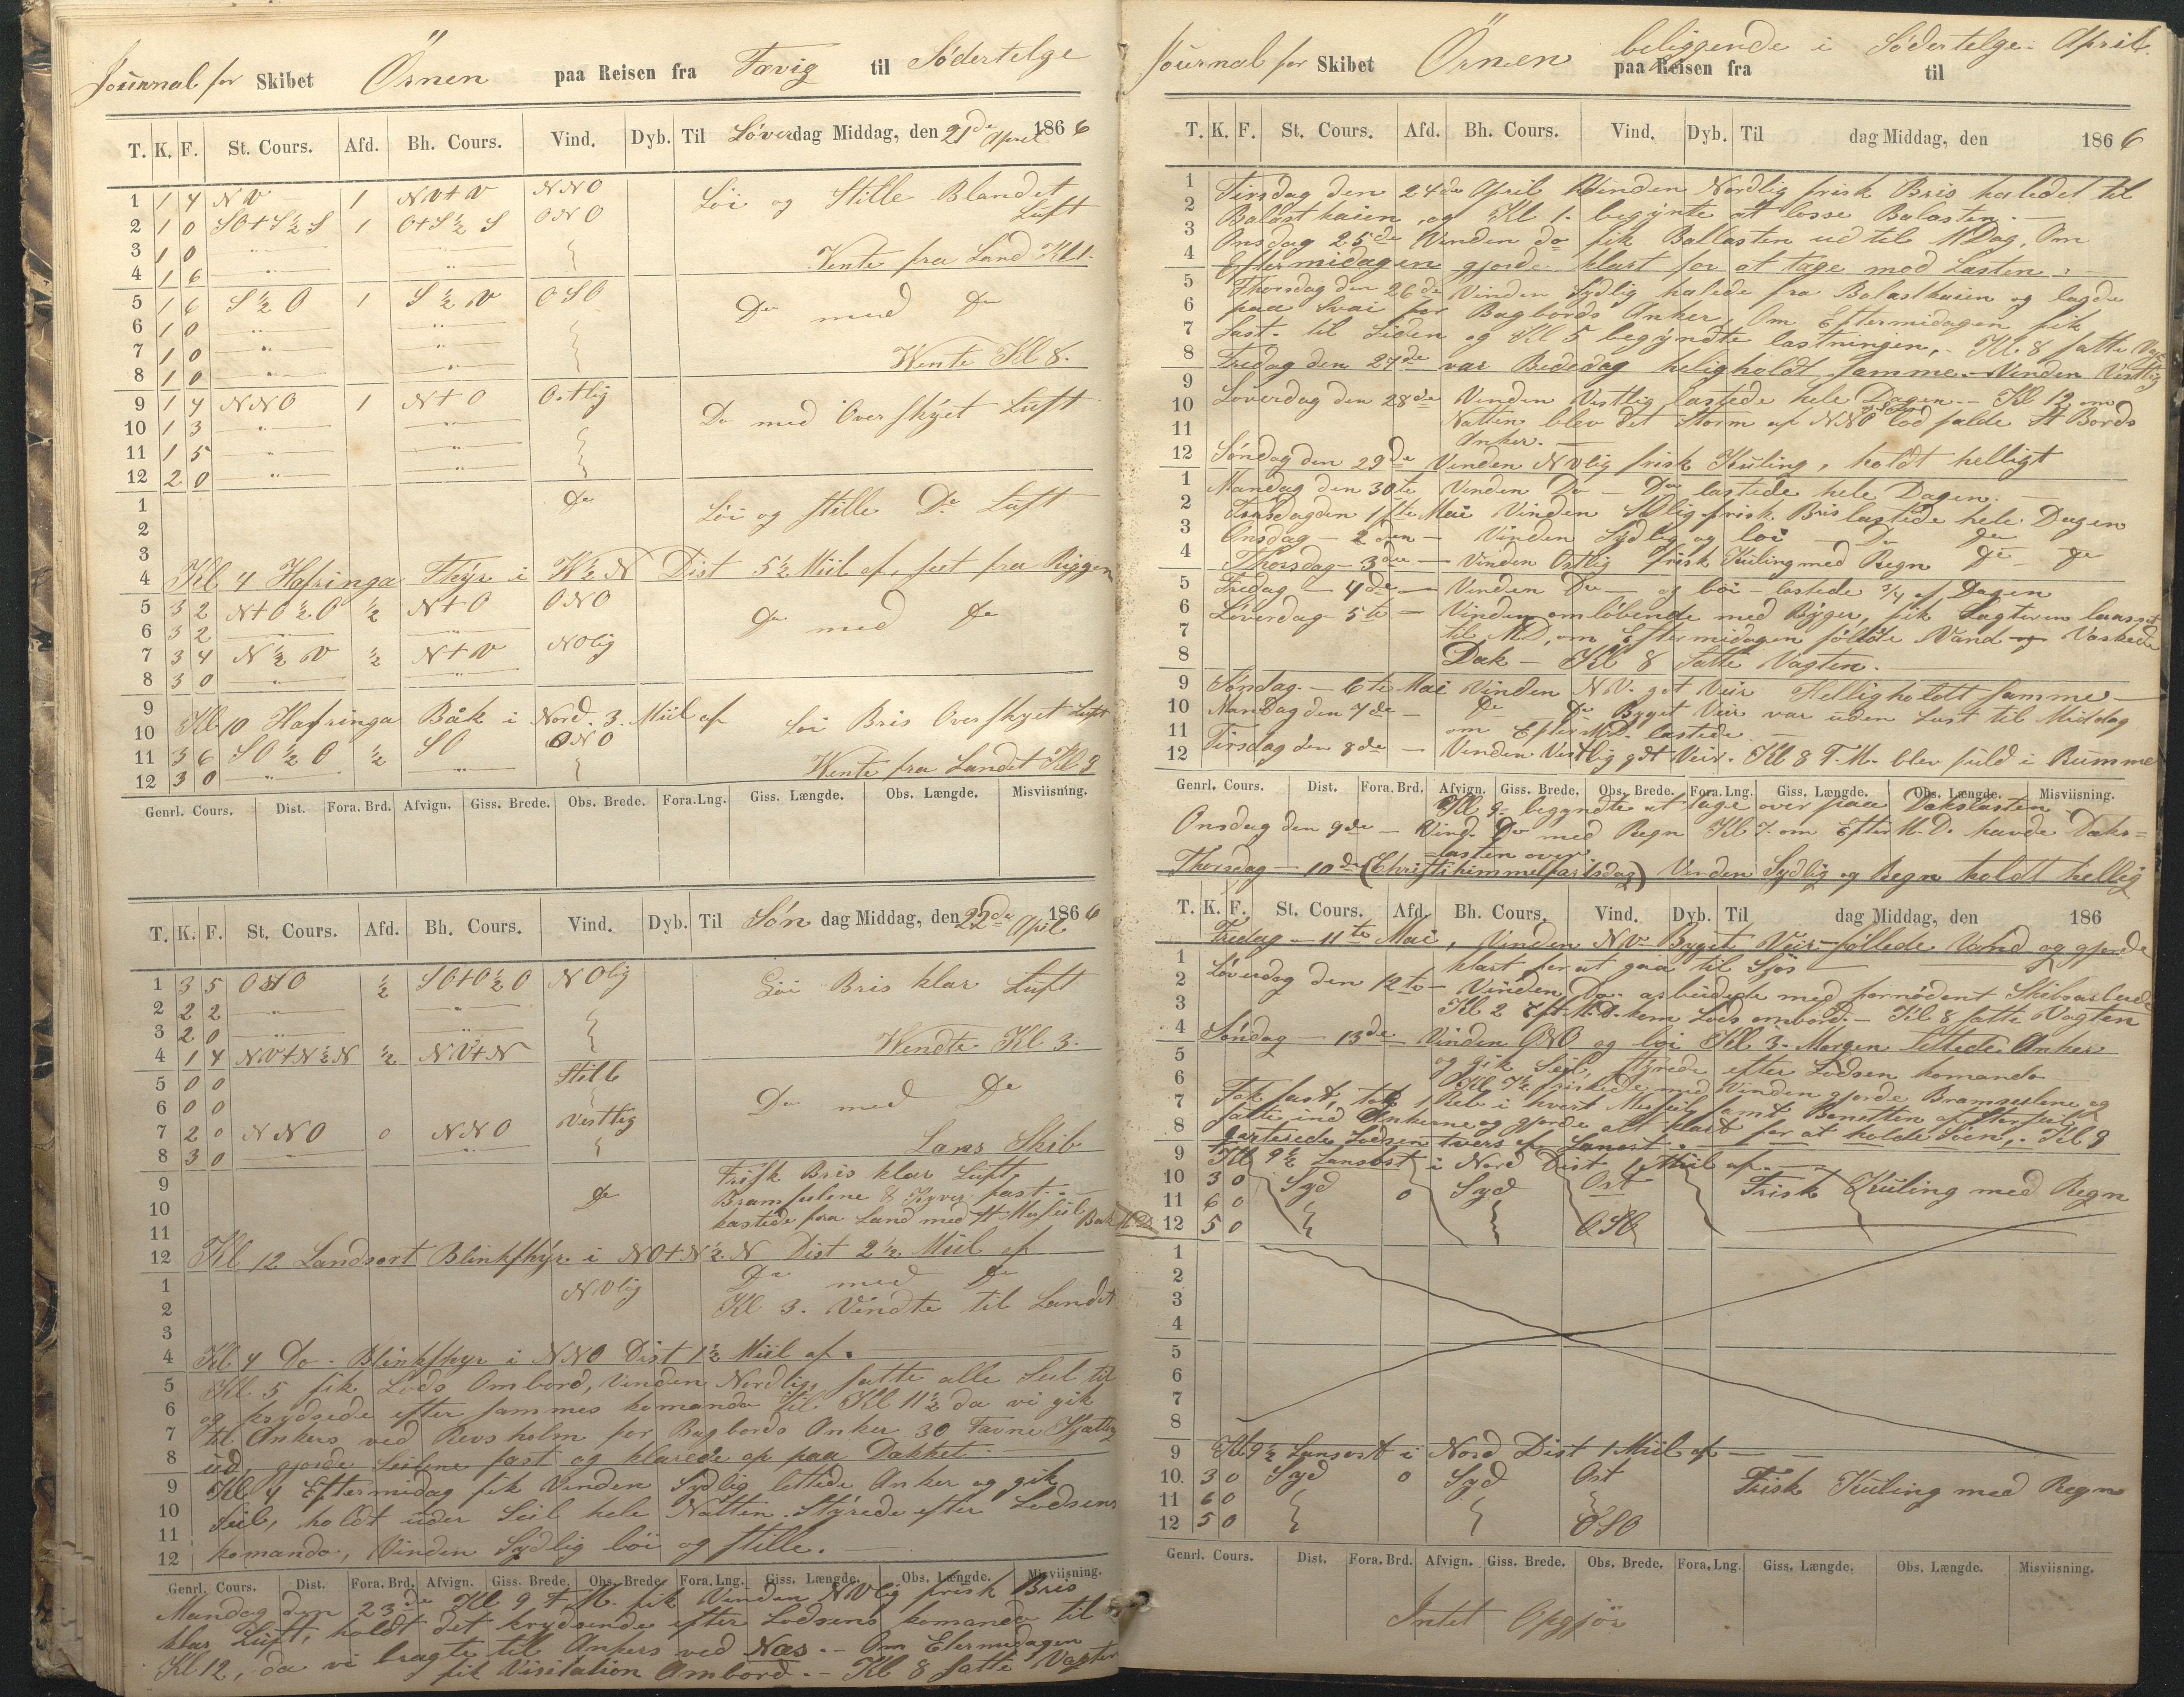 Journal for Skibet Örnen paa Reisen fra Fævig til Södertelge
T. K. F. St. Cours. Afd. Bh. Cours. Vind. Dyb. Til Löverdag Middag, den 21de April 1866
1 1 4 NV 1 NV+V NNO Löi og Stille Blandet
2 1 0 SO+S½S 1 O+S½S ONO Luft
3 1 0 " "
Vente fra Land Kl 1.
4 1 6 " "
5 1 6 S½O 1 S½V OSO Do med Do
6 1 0 " "
7 1 0 " "
Wente Kl 8.
8 1 0 " "
9 1 4 NNO 1 N+O Ostlig Do med Overskyet Luft
10 1 3 " "
11 1 5 " "
12 2 0 " "
1 Do Löi og stille Do Luft
2
3
4 Kl 4 Hafringa Fhÿr i W½N Dist 5½ Miil af, seet fra Riggen
5 3 2 N+O½O ½ N+O ONO Do med Do
6 3 2 " "
7 3 4 N½V ½ N+V NOlig
8 3 0 " "
9
10 Kl 10 Hafringa Båk i Nord. 3. Miil af Löi Bris Overskyet Luft
11 3 6 SO½O ½ SO ONO
12 3 0 " " Wente fra Landet Kl 9
Genrl. Cours. Dist. Fora. Brd. Afvign. Giss. Brede. Obs. Brede. Fora. Lng. Giss. Længde. Obs. Længde. Misviisning.
T. K. F. St. Cours. Afd. Bh. Cours. Vind. Dyb. Til Söndag Middag, den 22de April 1866
1 3 5 OSO ½ SO+O½O NOlig Löi Bris klar Luft
2 2 2 " "
3 2 0 " "
4 1 4 NV+N½N ½ NV+N Wendte Kl 3.
5 0 0 Stille
6 0 0 Do med Do
7 2 0 NNO 0 NNO Vestlig
8 3 0 " " Lans Skib
9 Frisk Bris klar Luft,
10 Do Bramseilene & Kyver fast.
11 kastede fra Land med St Merseil Bak
12 Kl 12 Landsort Blinkfhÿr i NO+N½N Dist 2½ Miil af
1 NVlig Do med Do
2 Kl 3. Vendte til Landet
3
4 Kl 4 Do. Blinkfhyr i NNO Dist 1½ Miil af.
5 Kl 5 fik Lods Ombord, Vinden Nordlig, satte alle Seil til
6 og krydsede efter sammes komando til Kl 11½ da vi gik
7 til Ankers ved Revsholm for Bagbords Anker 30 Favne Kjætting
8 ud, gjorde Seilene fast og klarede op paa Dækket.
9 Kl 4 Eftermidag fik Vinden Sydlig lettede Anker og gik
10 Seil, holdt under Seil hele Natten Styrede efter Lodsens
11
12 komando, Vinden Sydlig löi og stille.
Genrl. Cours. Dist. Fora. Brd. Afvign. Giss. Brede. Obs. Brede. Fora. Lng. Giss. Længde. Obs. Længde. Misviisning.
Mandag den 23de Kl 9 F.M. fik Vinden NVlig frisk Bris
klar Luft, holdt det krydsende efter Lodsens komando til
Kl 12, da vi bragte til Ankers ved Næs. - Om Efermidagen
fik Visitation Ombord. - Kl 8 satte Vagten
Journal for Skibet Örnen beliggende i Södertelge April.
paa Reisen fra til
T. K. F. St. Cours. Afd. Bh. Cours. Vind. Dyb. Til dag Middag, den 1866
1 Tirsdag den 24de April Vinden Nordlig frisk Bris haledet til
2 Balastkaien, og Kl 1. begynte at losse Balasten.
3 Onsdag 25de Vinden do fik Ballasten ud til MDag, Om
4 Eftermidagen gjorde klart for at tage mod Lasten.
5 Thorsdag den 26de Vinden Sydlig halede fra Balastkaien og lagde
6 paa Svai for Bagbords Anker, Om Eftermidagen fik
7 Last til Siden og Kl 5 begyndte lastningen, - Kl 8 satte Vagt
8 Fredag den 27de var Bededag heligholdt samme. - Vinden Vestlig
9 Löverdag den 28de Vinden Vestlig lastede hele Dagen. - Kl 12 om
10 Natten blev det Storm af NNO lod falde St Bords
11 Anker.
12 Söndag den 29de Vinden NVlig frisk Kuling, holdt helligt
1 Mandag den 30te Vinden Do - Do lastede hele Dagen.
2 Tirsdag den 1ste Mai Vinden SOlig frisk Bris lastede hele Dagen
3 Onsdag - 2den - Vinden Sydlig og löi - Do Do
4 Thorsdag - 3die - Vinden Ostlig frisk Kuling med Regn Do - Do
5 Fredag - 4de - Vinden Do - og löi - lastede ¾ af Dagen
6 Löverdag - 5te - Vinden omlöbende med Byger, fik Lagteren
7 til MD, om Eftermidagen föllede Vand og Vaskede
8 Dæk - Kl 8 Satte Vagten.
9 Söndag - 6te Mai Vinden N.V. got Veir Helligholdt samme
10 Mandag den 7de - Do Do Byget Veir var uden Last til Middag
11 om EfterMD. lastede
12 Tirsdag den 8de - Vinden Vestlig gdt Veir. Kl 8 F.M. blev fuld i Rumme
Genrl. Cours. Dist. Fora. Brd. Afvign. Giss. Brede. Obs. Brede. Fora. Lng. Giss. Længde. Obs. Længde. Misviisning.
Kl 9. begyndte at tage over paa Dækslasten
Onsdag den 9de - Vind. Do med Regn Kl 7. om Efter M.D. havde Dæks=
=lasten over
Thorsdag - 10de (Christi himmelfartsdag) Vinden Sydlig og Regn holdt hellig
T. K. F. St. Cours. Afd. Bh. Cours. Vind. Dyb. Til dag Middag, den 186
Fredag - 11te Mai, Vinden NV Byget Veir - föllede Vand og gjorde
1 klart for at gaa til Sjös
2 Löverdag den 12te - Vinden Do. arbeidede med fornödent Skibsarbeide
3 Kl 2 Eft. M.D. kom Lods ombord. - Kl 8 satte Vagten
4 Söndag - 13de - Vinden ONO og löi Kl 3. Morgen lettede Anker
5 og gik Seil, styrede efter Lodsen komando
6 Kl 7½ friskede med Vinden gjorde Bramseilene og
7 Fok fast, tok 1 Reb i hvert Merseil samt Bonetten af Storseil
8 satte ind Ankerne og gjorde alt klart for at holde Söen, - Kl 9
kvitterede Lodsen tvers af Lansort.
9 Kl 9½ Lansort i Nord Dist 1 Miil af
10 3 0 Syd 0 Syd Ost Frisk Kuling med Regn
11 6 0
12 5 0 OSO
1
2
3
4
5
6
7
8
9 Kl 9½ Lansort i Nord Dist 1 Miil af
10. 3 0 Syd 0 Syd Ost Frisk Kuling med Regn
11 6 0
12 5 0 OSO
Genrl. Cours. Dist. Fora. Brd. Afvign. Giss. Brede. Obs. Brede. Fora. Lng. Giss. Længde. Obs. Længde. Misviisning.
Intet Opgjör